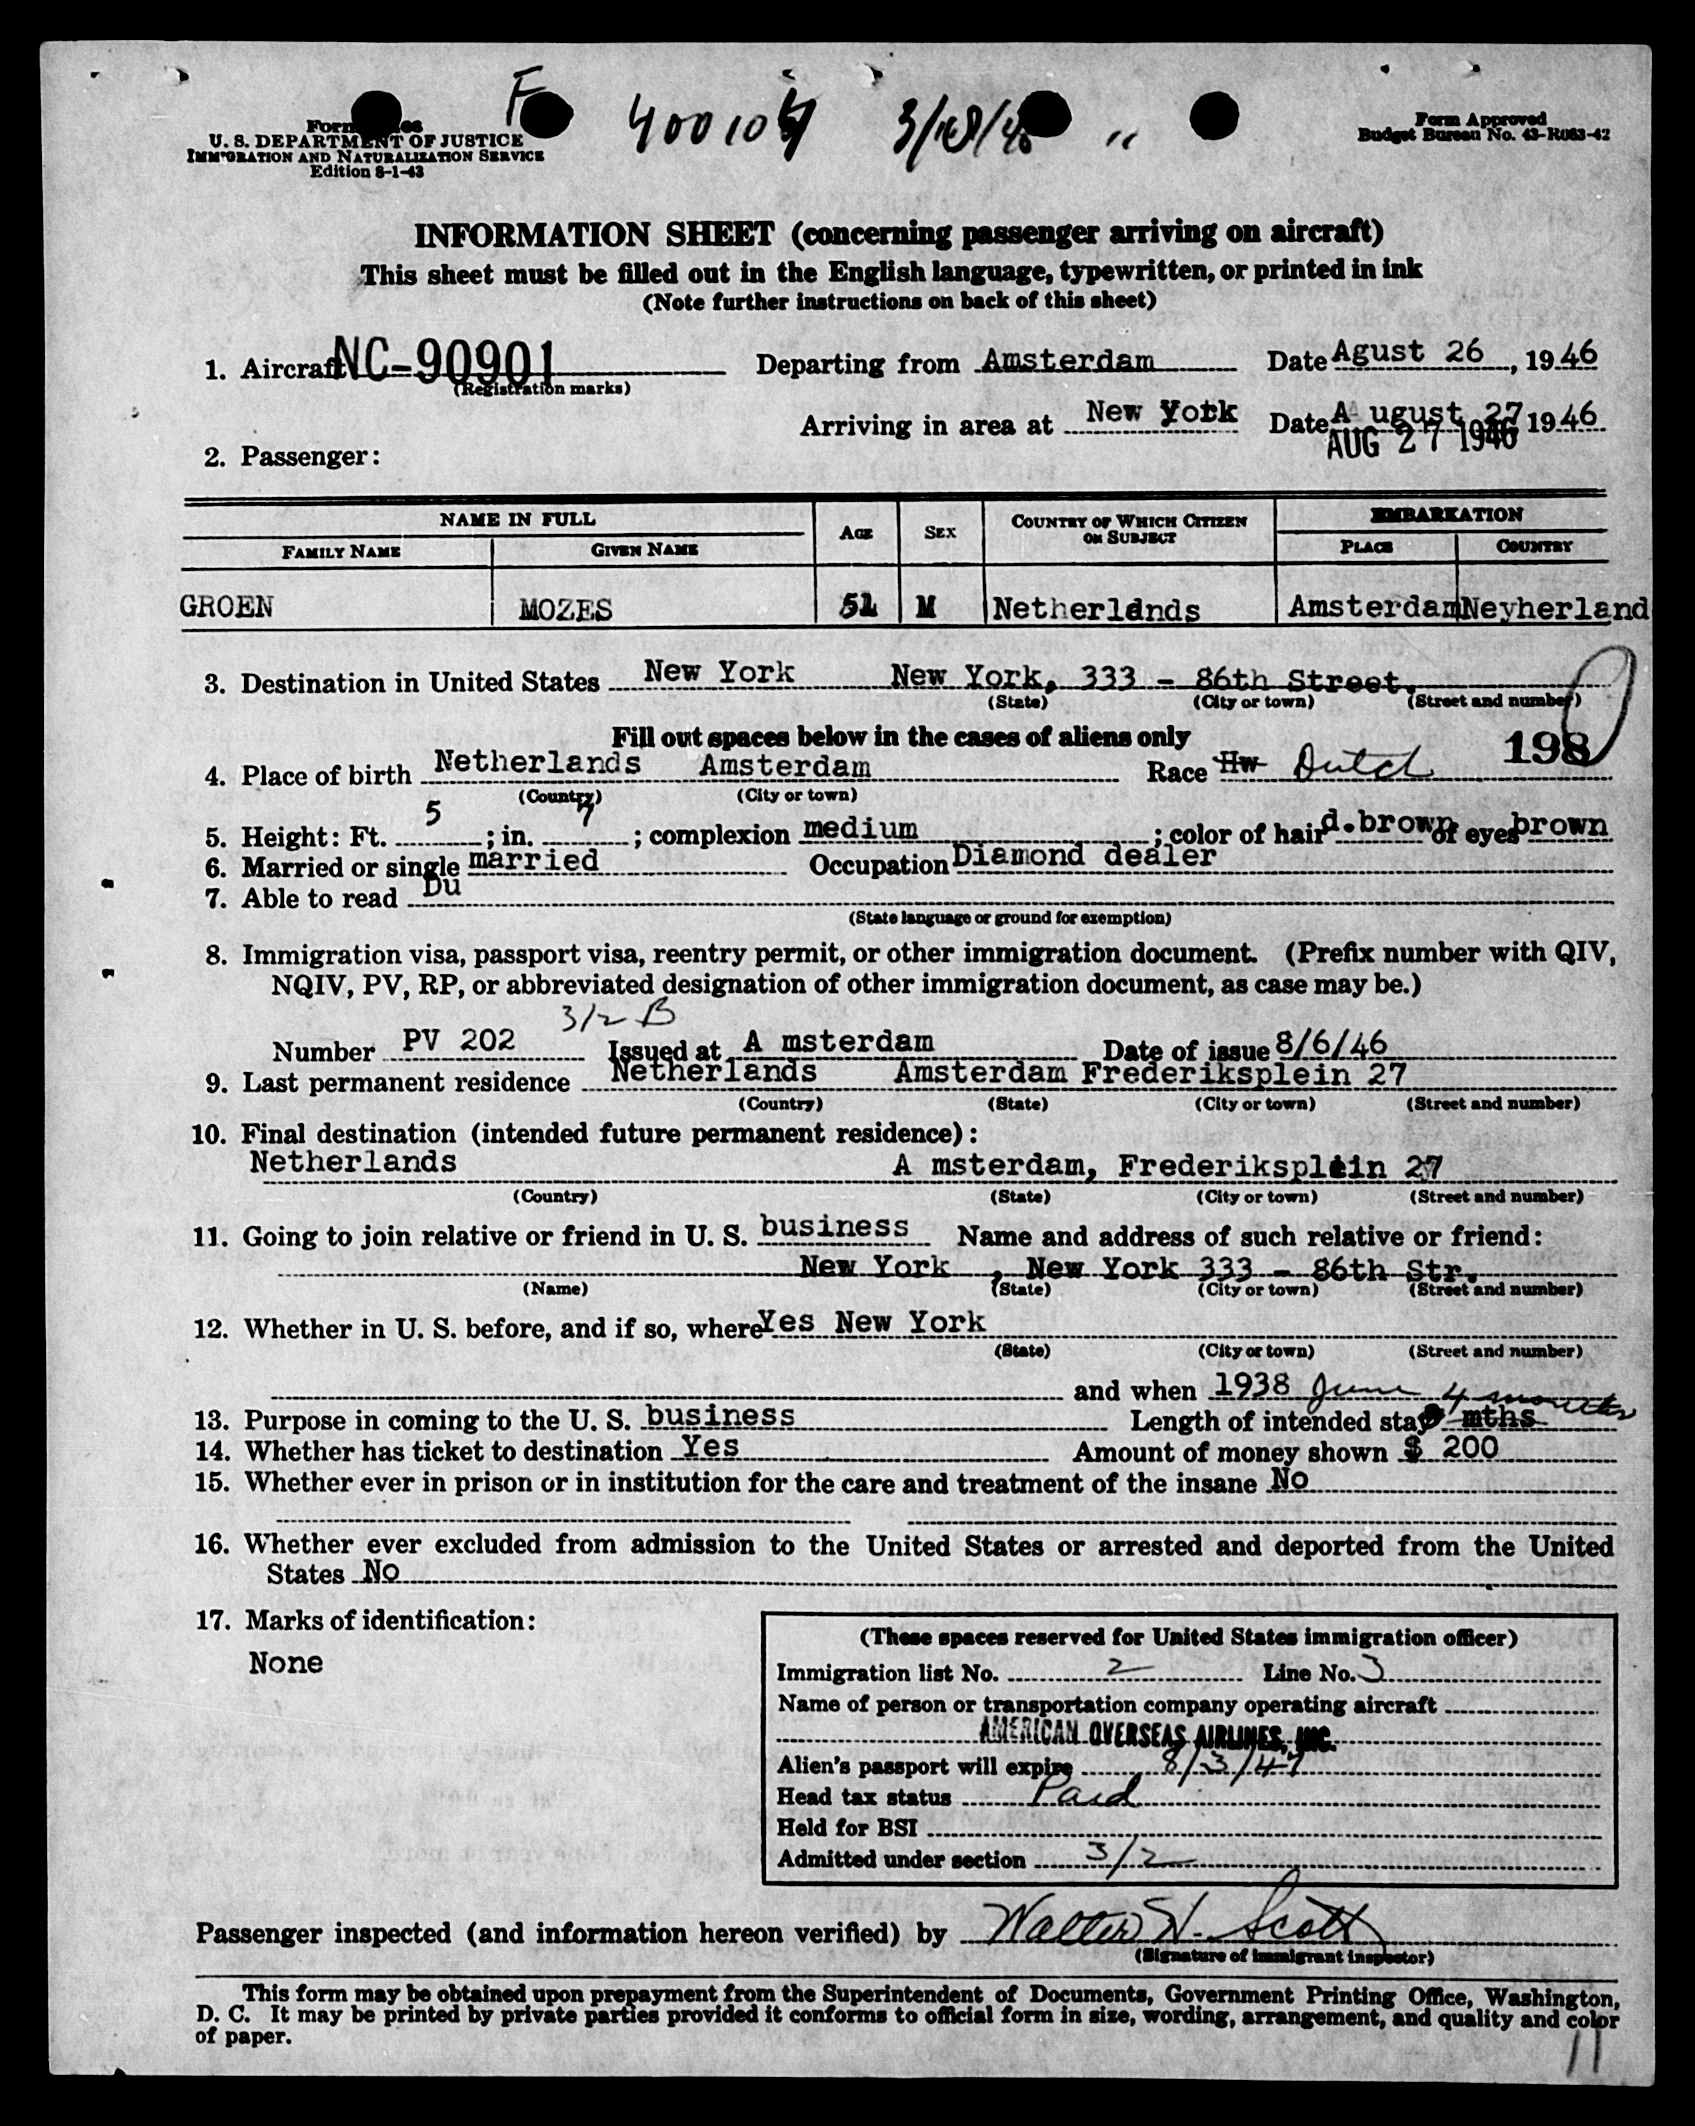 F 3/18/46 "
U. S. DEPARTMENT OF JUSTICE
IMMIGRATION AND NATURALIZATION SERVICE
Edition 8-1-43
Form Approved
Budget Bureau No. 43-R063-42
INFORMATION SHEET (concerning passenger arriving on aircraft)
This sheet must be filled out in the English language, typewritten, or printed in ink
(Note further instructions on back of this sheet)
1. Aircraft NC-90901 Departing from Amsterdam Date Agust 26, 1946
(Registration marks)
Arriving in area at New York Date A ugust 27 1946
AUG 27 1946
2. Passenger:
NAME IN FULL AGE SEX COUNTRY OF WHICH CITIZEN OR SUBJECT EMBARKATION
FAMILY NAME GIVEN NAME PLACE COUNTRY
GROEN MOZES 51 M Netherlands Amsterdam Neyherland
3. Destination in United States New York New York, 333 - 86th Street.
(State) (City or town) (Street and number)
Fill out spaces below in the cases of aliens only 198
4. Place of birth Netherlands Amsterdam Race Hw Dutch
(Country) (City or town)
5. Height: Ft. 5 ; in. 7 ; complexion medium ; color of hair d.brown of eyes brown
6. Married or single married Occupation Diamond dealer
7. Able to read Du
(State language or ground for exemption)
8. Immigration visa, passport visa, reentry permit, or other immigration document. (Prefix number with QIV,
NQIV, PV, RP, or abbreviated designation of other immigration document, as case may be.)
3/2 B
Number PV 202 Issued at A msterdam Date of issue 8/6/46
9. Last permanent residence Netherlands Amsterdam Frederiksplein 27
(Country) (State) (City or town) (Street and number)
10. Final destination (intended future permanent residence):
Netherlands A msterdam, Frederiksplein 27
(Country) (State) (City or town) (Street and number)
11. Going to join relative or friend in U. S. business Name and address of such relative or friend:
New York , New York 333 - 86th Str.
(Name) (State) (City or town) (Street and number)
12. Whether in U. S. before, and if so, where Yes New York
(State) (City or town) (Street and number)
and when 1938 June 4 months
13. Purpose in coming to the U. S. business Length of intended stay mths
14. Whether has ticket to destination Yes Amount of money shown $ 200
15. Whether ever in prison or in institution for the care and treatment of the insane No
16. Whether ever excluded from admission to the United States or arrested and deported from the United
States No
17. Marks of identification:
None
(These spaces reserved for United States immigration officer)
Immigration list No. 2 Line No. 3
Name of person or transportation company operating aircraft
AMERICAN OVERSEAS AIRLINES, INC.
Alien's passport will expire 8/3/47
Head tax status Paid
Held for BSI
Admitted under section 3/2
Passenger inspected (and information hereon verified) by Walter H. Scott
(Signature of immigrant inspector)
This form may be obtained upon prepayment from the Superintendent of Documents, Government Printing Office, Washington,
D. C. It may be printed by private parties provided it conforms to official form in size, wording, arrangement, and quality and color
of paper.
11